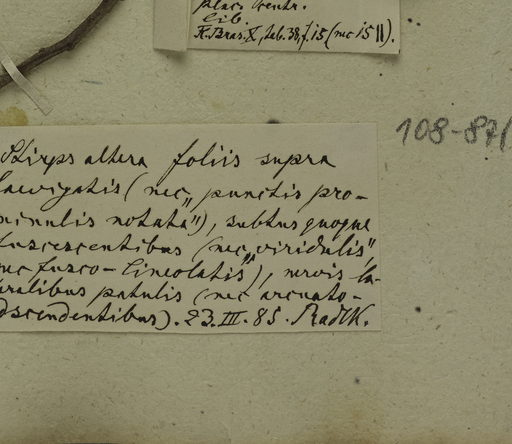 plac. centr.
Cib.
Fl. Bras. X, tab. 38, f. 15 (nec 15 II).
108-87/
Stirps altera foliis supra
laevigatis (nec „punctis pro-
minulis notata"), subtus quoque
fuscescentibus (nec „viridulis",
nec fusco-lineolatis"), nervis la-
teralibus patulis (nec arcuato-
adscendentibus). 23.III.85. Radlk.